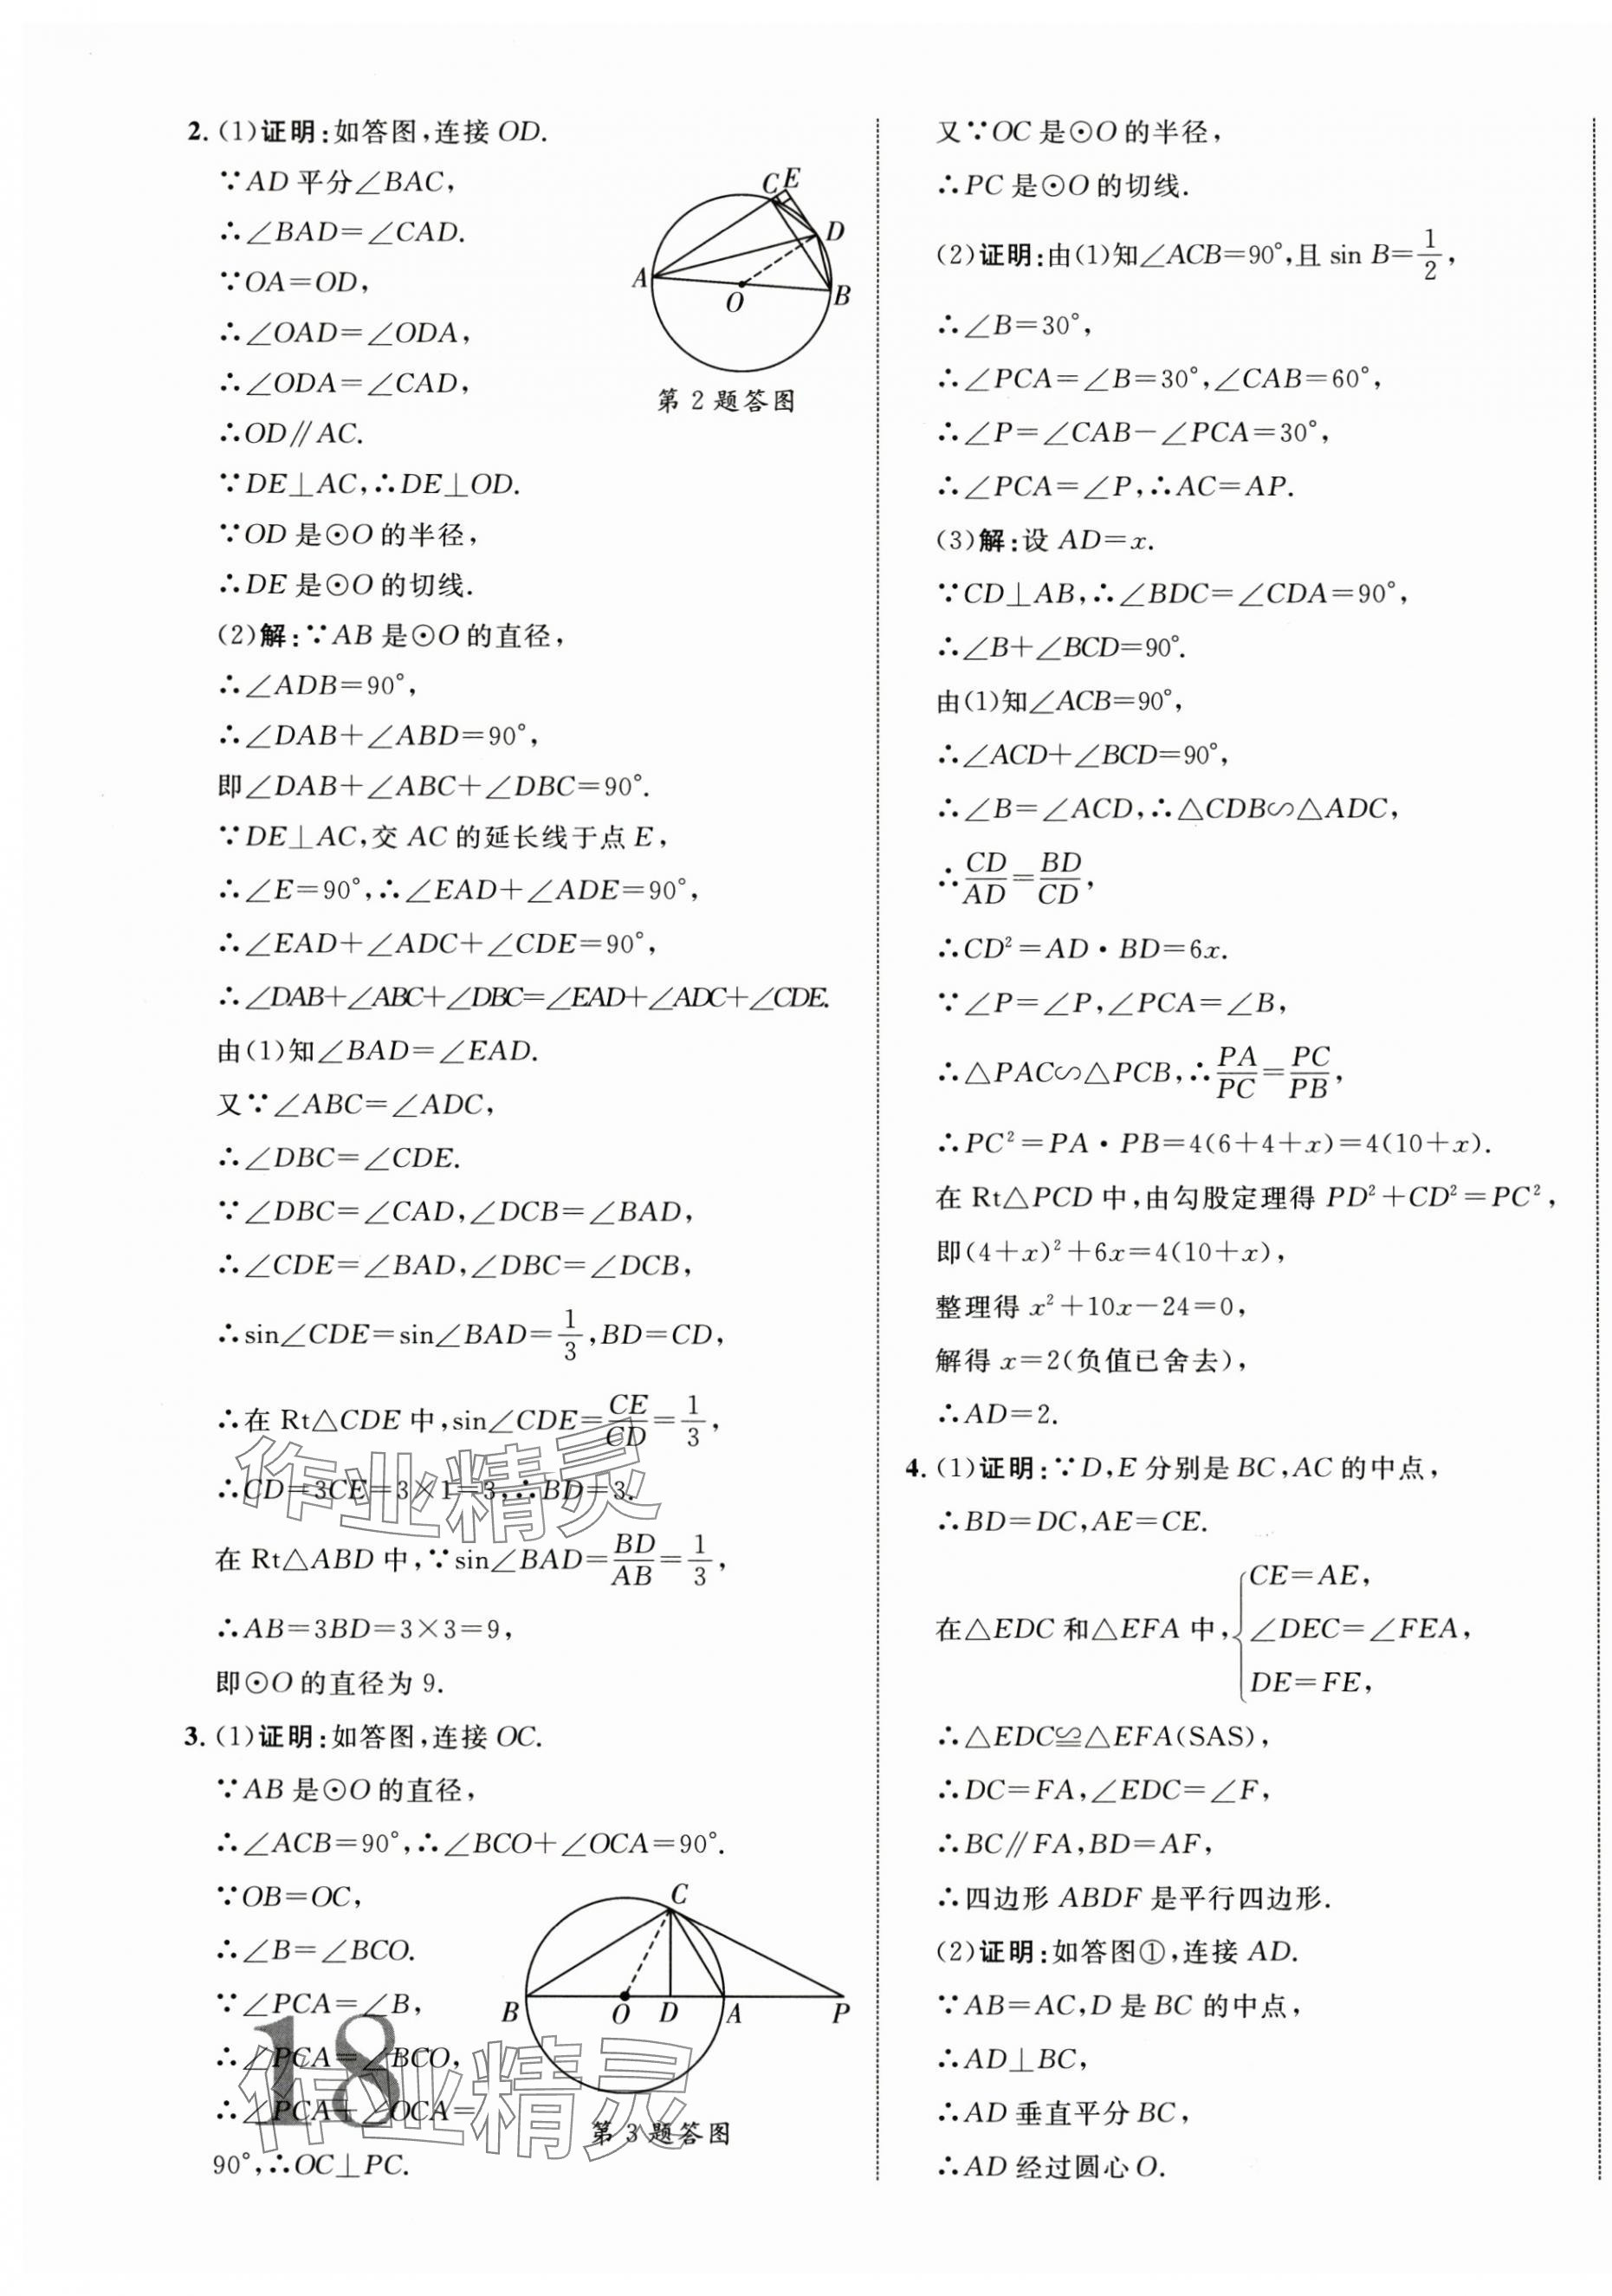 2. (1)证明:如答图,连接 OD.
∵AD 平分∠BAC,
∴∠BAD=∠CAD.
∵OA=OD,
∴∠OAD=∠ODA,
∴∠ODA=∠CAD,
∴OD∥AC.
∵DE⊥AC,∴DE⊥OD.
∵OD 是⊙O 的半径,
∴DE 是⊙O 的切线.
C E
D
A
O
B
第 2 题答图
(2)解:∵AB 是⊙O 的直径,
∴∠ADB=90°,
∴∠DAB+∠ABD=90°,
即∠DAB+∠ABC+∠DBC=90°.
∵DE⊥AC,交 AC 的延长线于点 E,
∴∠E=90°,∴∠EAD+∠ADE=90°,
∴∠EAD+∠ADC+∠CDE=90°,
∴∠DAB+∠ABC+∠DBC=∠EAD+∠ADC+∠CDE.
由(1)知∠BAD=∠EAD.
又∵∠ABC=∠ADC,
∴∠DBC=∠CDE.
∵∠DBC=∠CAD,∠DCB=∠BAD,
∴∠CDE=∠BAD,∠DBC=∠DCB,
∴sin∠CDE=sin∠BAD=1/3,BD=CD,
∴在 Rt△CDE 中,sin∠CDE=CE/CD=1/3,
∴CD=3CE=3×1=3,∴BD=3.
在 Rt△ABD 中,∵sin∠BAD=BD/AB=1/3,
∴AB=3BD=3×3=9,
即⊙O 的直径为 9.
3. (1)证明:如答图,连接 OC.
∵AB 是⊙O 的直径,
∴∠ACB=90°,∴∠BCO+∠OCA=90°.
∵OB=OC,
∴∠B=∠BCO.
∵∠PCA=∠B,
∴∠PCA=∠BCO,
∴∠PCA+∠OCA=
90°,∴OC⊥PC.
C
B
O
D
A
P
第 3 题答图
18
作业精灵
作业精灵
又∵OC 是⊙O 的半径,
∴PC 是⊙O 的切线.
(2)证明:由(1)知∠ACB=90°,且 sin B=1/2,
∴∠B=30°,
∴∠PCA=∠B=30°,∠CAB=60°,
∴∠P=∠CAB-∠PCA=30°,
∴∠PCA=∠P,∴AC=AP.
(3)解:设 AD=x.
∵CD⊥AB,∴∠BDC=∠CDA=90°,
∴∠B+∠BCD=90°.
由(1)知∠ACB=90°,
∴∠ACD+∠BCD=90°,
∴∠B=∠ACD,∴△CDB∽△ADC,
∴CD/AD=BD/CD,
∴CD²=AD·BD=6x.
∵∠P=∠P,∠PCA=∠B,
∴△PAC∽△PCB,∴PA/PC=PC/PB,
∴PC²=PA·PB=4(6+4+x)=4(10+x).
在 Rt△PCD 中,由勾股定理得 PD²+CD²=PC²,
即(4+x)²+6x=4(10+x),
整理得 x²+10x-24=0,
解得 x=2(负值已舍去),
∴AD=2.
4. (1)证明:∵D,E 分别是 BC,AC 的中点,
∴BD=DC,AE=CE.
在△EDC 和△EFA 中,{CE=AE,
∠DEC=∠FEA,
DE=FE,
∴△EDC≌△EFA(SAS),
∴DC=FA,∠EDC=∠F,
∴BC∥FA,BD=AF,
∴四边形 ABDF 是平行四边形.
(2)证明:如答图①,连接 AD.
∵AB=AC,D 是 BC 的中点,
∴AD⊥BC,
∴AD 垂直平分 BC,
∴AD 经过圆心 O.